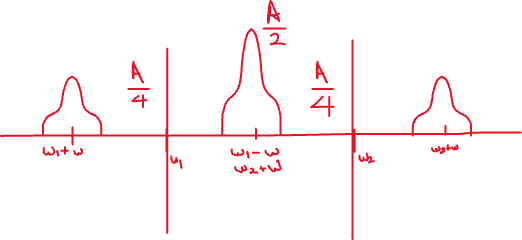 A/2
A/4
A/4
ω₁+ω
ω₁
ω₁-ω
ω₂+ω
ω₂
ω₂+ω